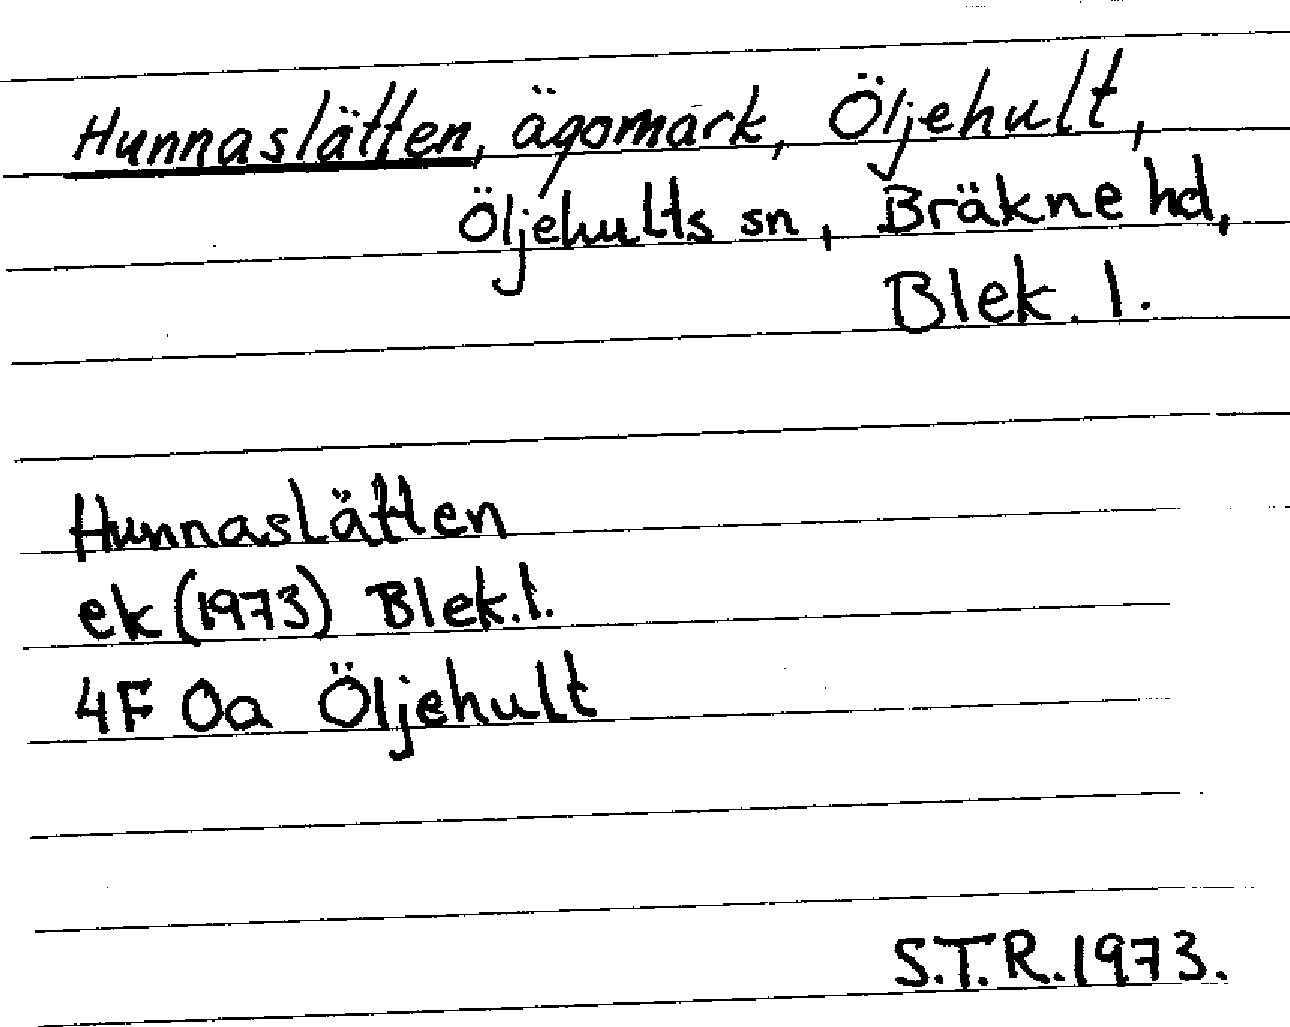 Hunnaslätten, ägomark, Öljehult,
Öljehults sn, Bräkne hd,
Blek. l.
Hunnaslätten
ek (1973) Blek. l.
4F 0a Öljehult
S.T.R. 1973.